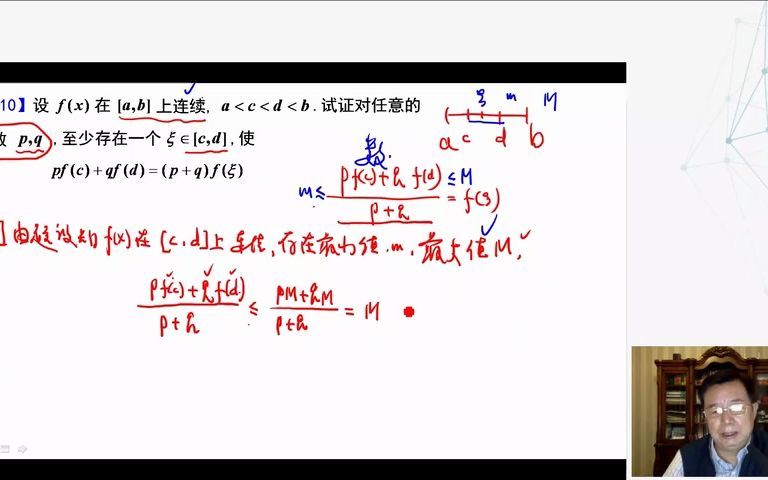 10】设 f(x) 在 [a,b] 上连续, a<c<d<b. 试证对任意的
数 p,q, 至少存在一个 ξ∈[c,d], 使
pf(c)+qf(d)=(p+q)f(ξ)
ξ m M
a c d b
数
m ≤ (pf(c)+qf(d))/(p+q) ≤ M = f(ξ)
] 由题设知 f(x) 在 [c,d] 上连续, 存在最小值 m, 最大值 M,
(pf(c)+qf(d))/(p+q) ≤ (pM+qM)/(p+q) = M